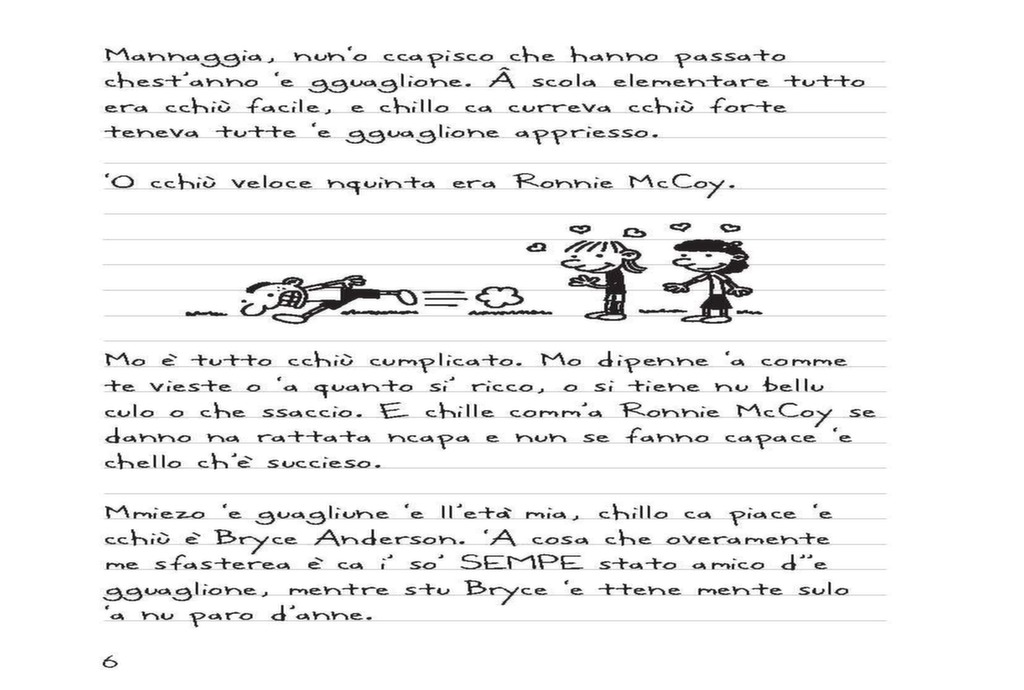 Mannaggia, nun'o ccapisco che hanno passato
chest'anno 'e gguaglione. Â scola elementare tutto
era cchiù facile, e chillo ca curreva cchiù forte
teneva tutte 'e gguaglione appriesso.
'O cchiù veloce nquinta era Ronnie McCoy.
Mo è tutto cchiù cumplicato. Mo dipenne 'a comme
te vieste o 'a quanto si' ricco, o si tiene nu bellu
culo o che ssaccio. E chille comm'a Ronnie McCoy se
danno na rattata ncapa e nun se fanno capace 'e
chello ch'è succieso.
Mmiezo 'e guagliune 'e ll'età mia, chillo ca piace 'e
cchiù è Bryce Anderson. 'A cosa che overamente
me sfasterea è ca i' so' SEMPE stato amico d''e
gguaglione, mentre stu Bryce 'e ttene mente sulo
'a nu paro d'anne.
6